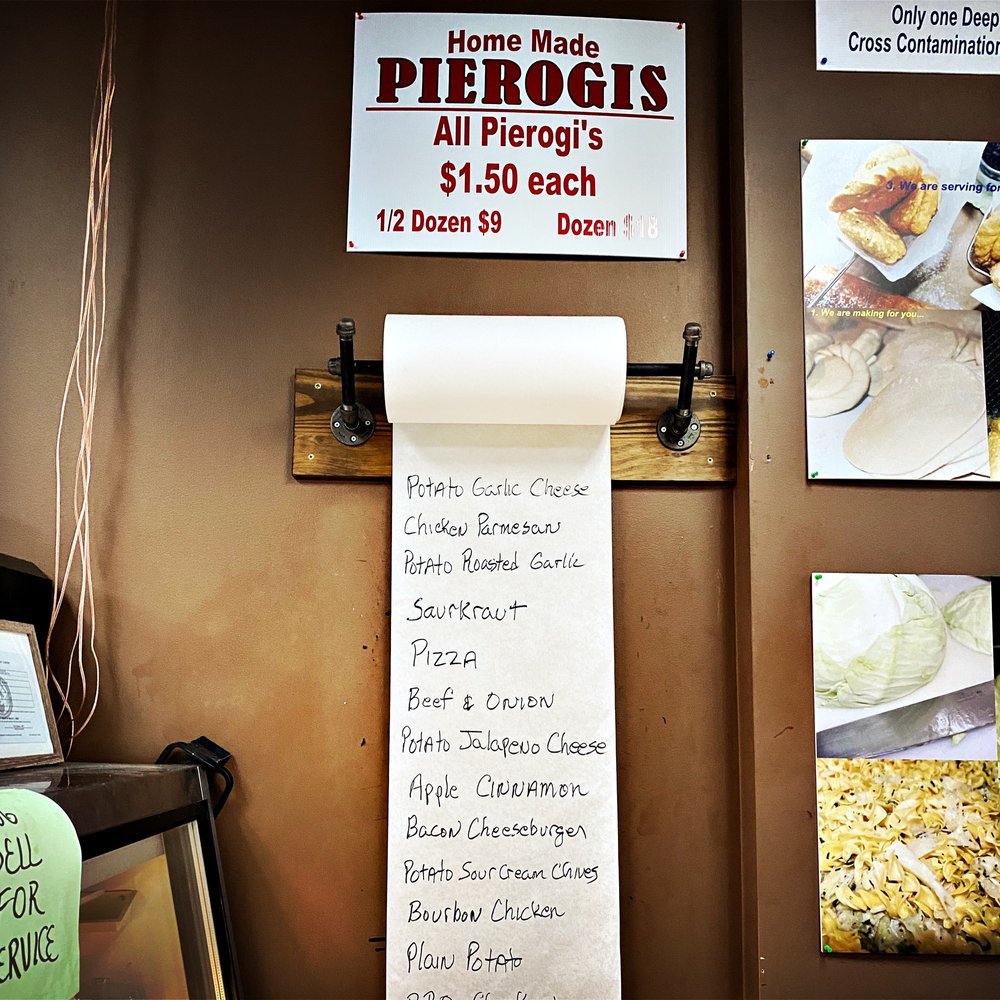 Home Made
PIEROGIS
All Pierogi's
$1.50 each
1/2 Dozen $9 Dozen $18
Only one Deep
Cross Contamination
3. We are serving for
1. We are making for you...
Potato Garlic Cheese
Chicken Parmesan
Potato Roasted Garlic
Saurkraut
Pizza
Beef & Onion
Potato Jalapeno Cheese
Apple Cinnamon
Bacon Cheeseburger
Potato Sour Cream Chives
Bourbon Chicken
Plain Potato
FOR